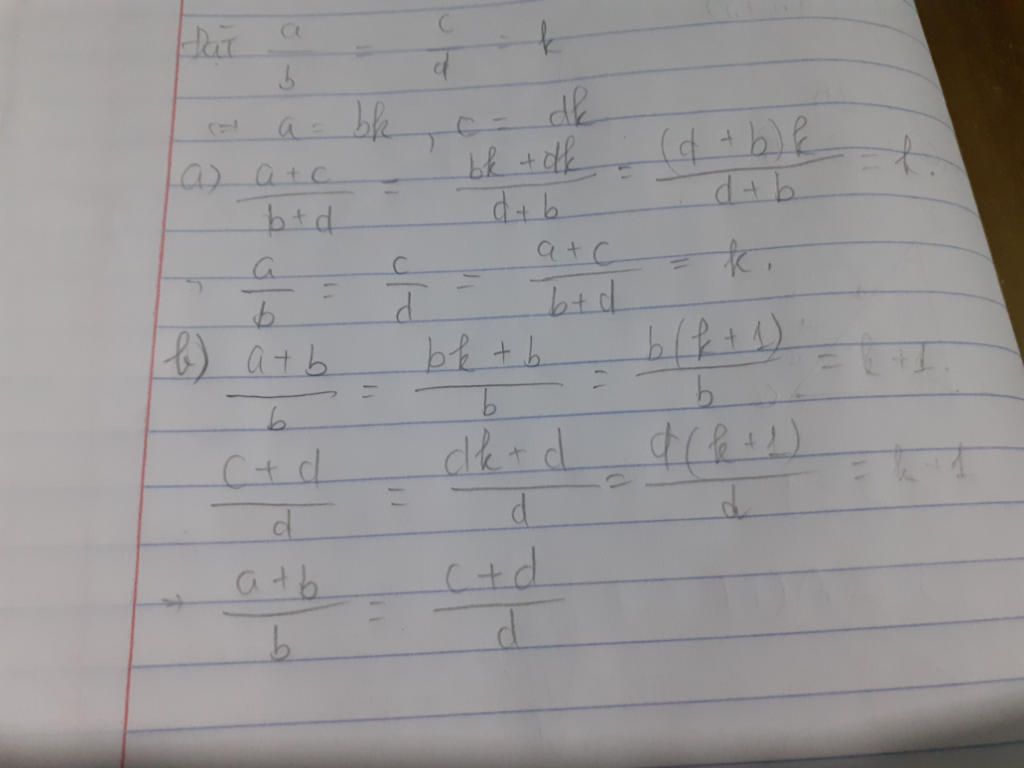 Đặt a/b = c/d = k
⇒ a = bk, c = dk
a) (a+c)/(b+d) = (bk+dk)/(d+b) = ((d+b)k)/(d+b) = k.
a/b = c/d = (a+c)/(b+d) = k.
b) (a+b)/b = (bk+b)/b = (b(k+1))/b = k+1.
(c+d)/d = (dk+d)/d = (d(k+1))/d = k+1
⇒ (a+b)/b = (c+d)/d